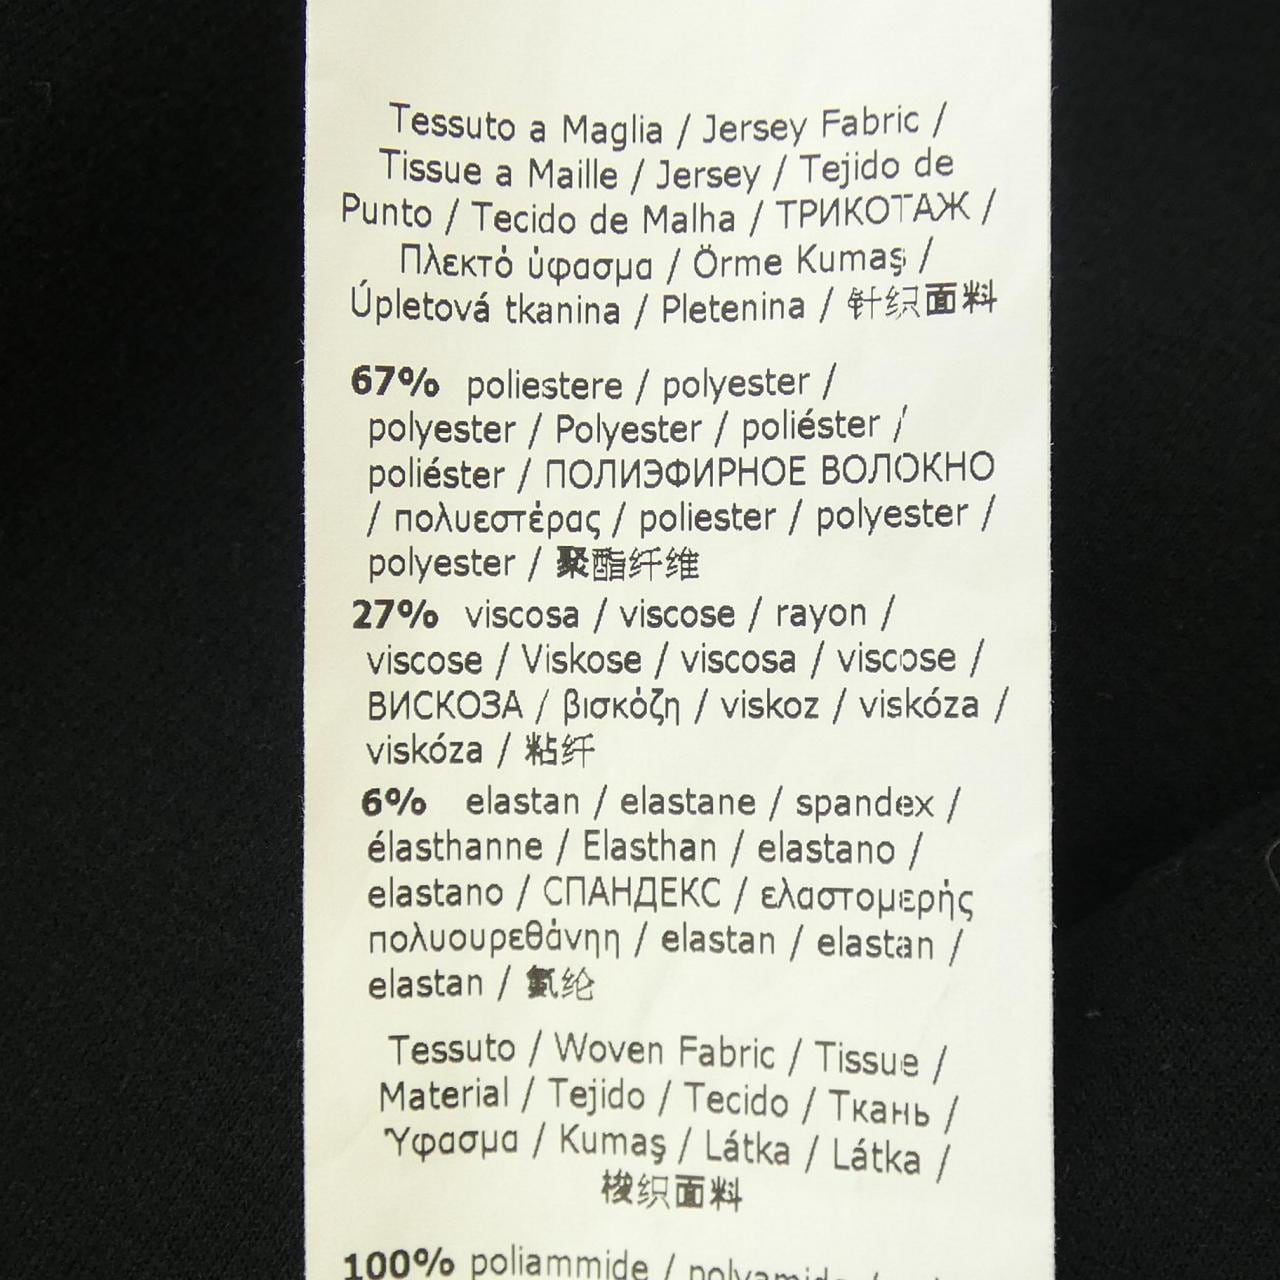 Tessuto a Maglia / Jersey Fabric /
Tissue a Maille / Jersey / Tejido de
Punto / Tecido de Malha / ТРИКОТАЖ /
Πλεκτό ύφασμα / Örme Kumaş /
Úpletová tkanina / Pletenina / 针织面料
67% poliestere / polyester /
polyester / Polyester / poliéster /
poliéster / ПОЛИЭФИРНОЕ ВОЛОКНО
/ πολυεστέρας / poliester / polyester /
polyester / 聚酯纤维
27% viscosa / viscose / rayon /
viscose / Viskose / viscosa / viscose /
ВИСКОЗА / βισκόζη / viskoz / viskóza /
viskóza / 粘纤
6% elastan / elastane / spandex /
élasthanne / Elasthan / elastano /
elastano / СПАНДЕКС / ελαστομερής
πολυουρεθάνηη / elastan / elastan /
elastan / 氨纶
Tessuto / Woven Fabric / Tissue /
Material / Tejido / Tecido / Ткань /
Ύφασμα / Kumaş / Látka / Látka /
梭织面料
100% poliammide / polyamide /